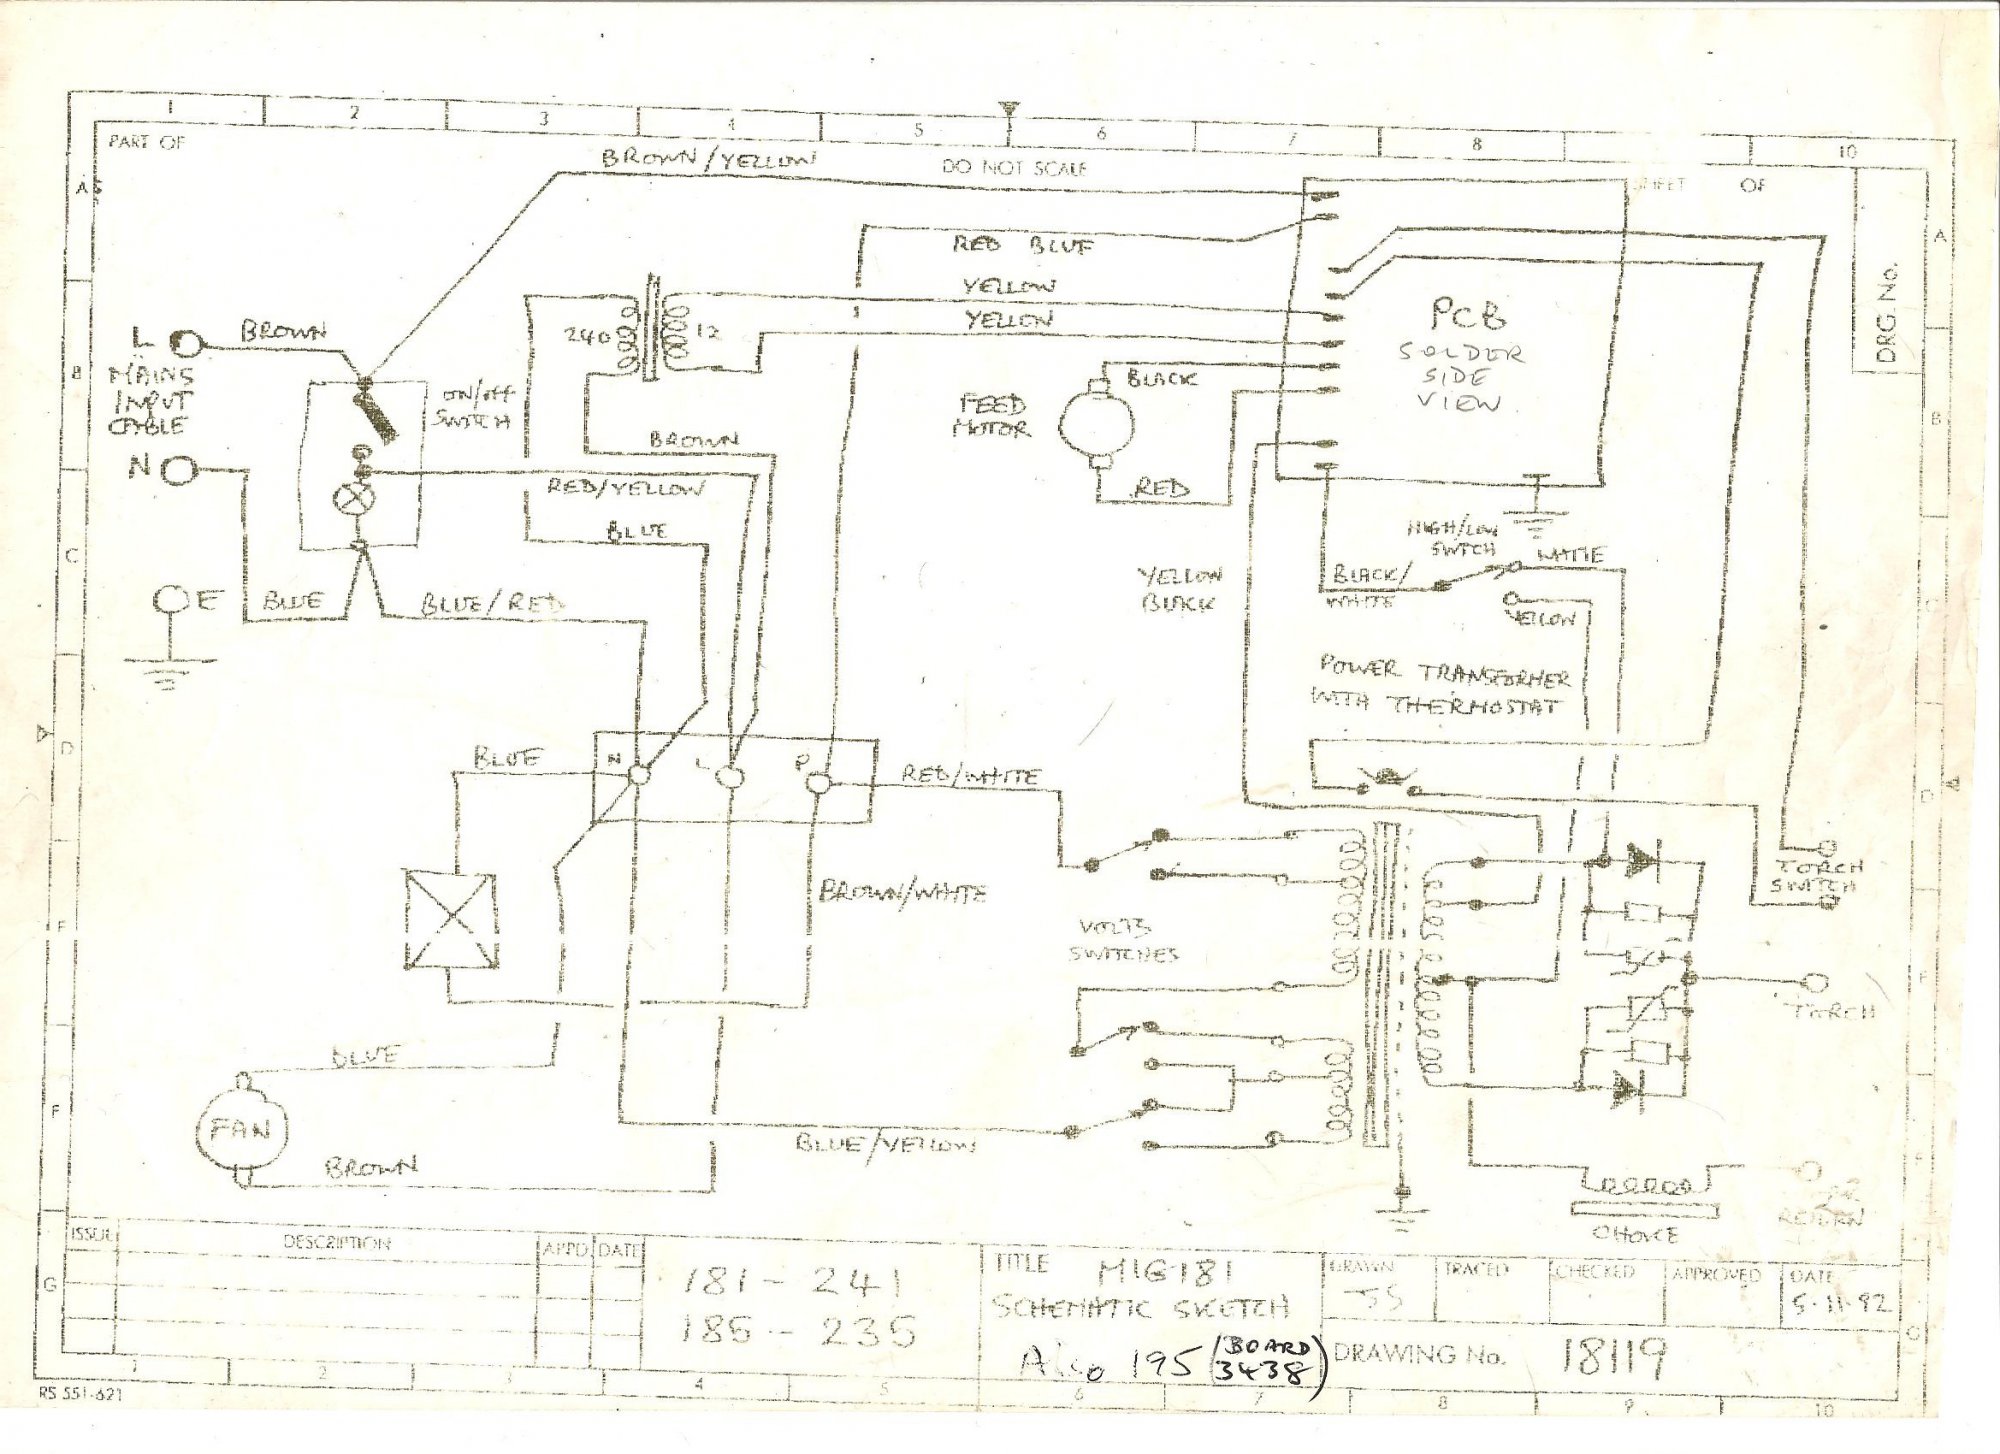 1 2 3 4 5 6 7 8 10
PART OF
DO NOT SCALE
SHEET OF
DRG. No.
BROWN/YELLOW
RED BLUE
YELLOW
YELLOW
240
12
PCB
SOLDER
SIDE
VIEW
L
BROWN
MAINS
INPUT
CABLE
N
ON/OFF
SWITCH
FEED
MOTOR
BLACK
RED
BROWN
RED/YELLOW
BLUE
HIGH/LOW
SWITCH
WHITE
BLACK/
WHITE
YELLOW
YELLOW
BLACK
E
BLUE
BLUE/RED
POWER TRANSFORMER
WITH THERMOSTAT
BLUE
N L P
RED/WHITE
BROWN/WHITE
VOLTS
SWITCHES
TORCH
SWITCH
TORCH
BLUE
FAN
BROWN
BLUE/YELLOW
CHOKE
RETURN
ISSUE
DESCRIPTION
APPD.
DATE
181 - 241
185 - 235
TITLE MIG 181
SCHEMATIC SKETCH
Also 195 (BOARD
3438)
DRAWN
JS
TRACED
CHECKED
APPROVED
DATE
5-11-92
DRAWING No. 18119
RS 551-621
1 2 3 4 5 6 7 8 9 10
A B C D E F G
A B C D F G